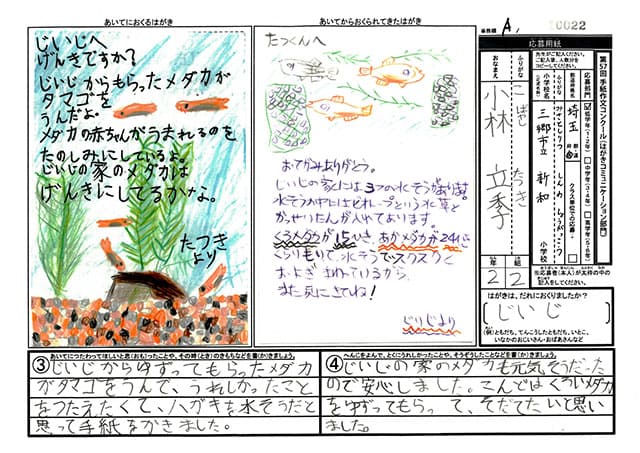 あいてにおくるはがき
じいじへ
げんきですか?
じいじからもらったメダカが
タマゴを
うんだよ。
メダカの赤ちゃんがうまれるのを
たのしみにしているよ。
じいじの家のメダカは
げんきにしてるかな。
たつき
より
あいてからおくられてきたはがき
たつくんへ
おてがみありがとう。
じいじの家には3つの水そうがあります。
水そうの中には
水草と
かっせいたんが入れてあります。
くろメダカが15ひき、あかメダカが24ひき
水そうでスクスクと
およぎまわっているから、
また見にきてね!
じいじより
A,
10022
応募用紙
第57回 手紙作文コンクール(はがきコミュニケーション部門)
応募部門
低学年(1・2年)
中学年(3・4年)
高学年(5・6年)
埼玉
三郷市立
新和
小学校
クラス単位での応募
ふりがな
こばやし
たつき
おなまえ
小林
立季
2年
2組
※応募者(本人)が太枠の中の記入をしてください。
はがきは、だれにおくりましたか?
じいじ
(例)ともだち、てんこうしたともだち、いとこ、
いなかのおじいさん・おばあさんなど
③ あいてにつたわってほしいと思(おも)ったことや、その時(とき)のきもちなどを書(か)きましょう。
じいじからゆずってもらったメダカ
がタマゴをうんで、うれしかったこと
をつたえたくて、ハガキを水そうだと
思って手紙をかきました。
④ へんじをよんで、とくにうれしかったことや、そうぞうしたことなどを書(か)きましょう。
じいじの家のメダカも元気そうだった
ので安心しました。こんどはくろいメダカ
をゆずってもらって、そだてたいと思い
ました。